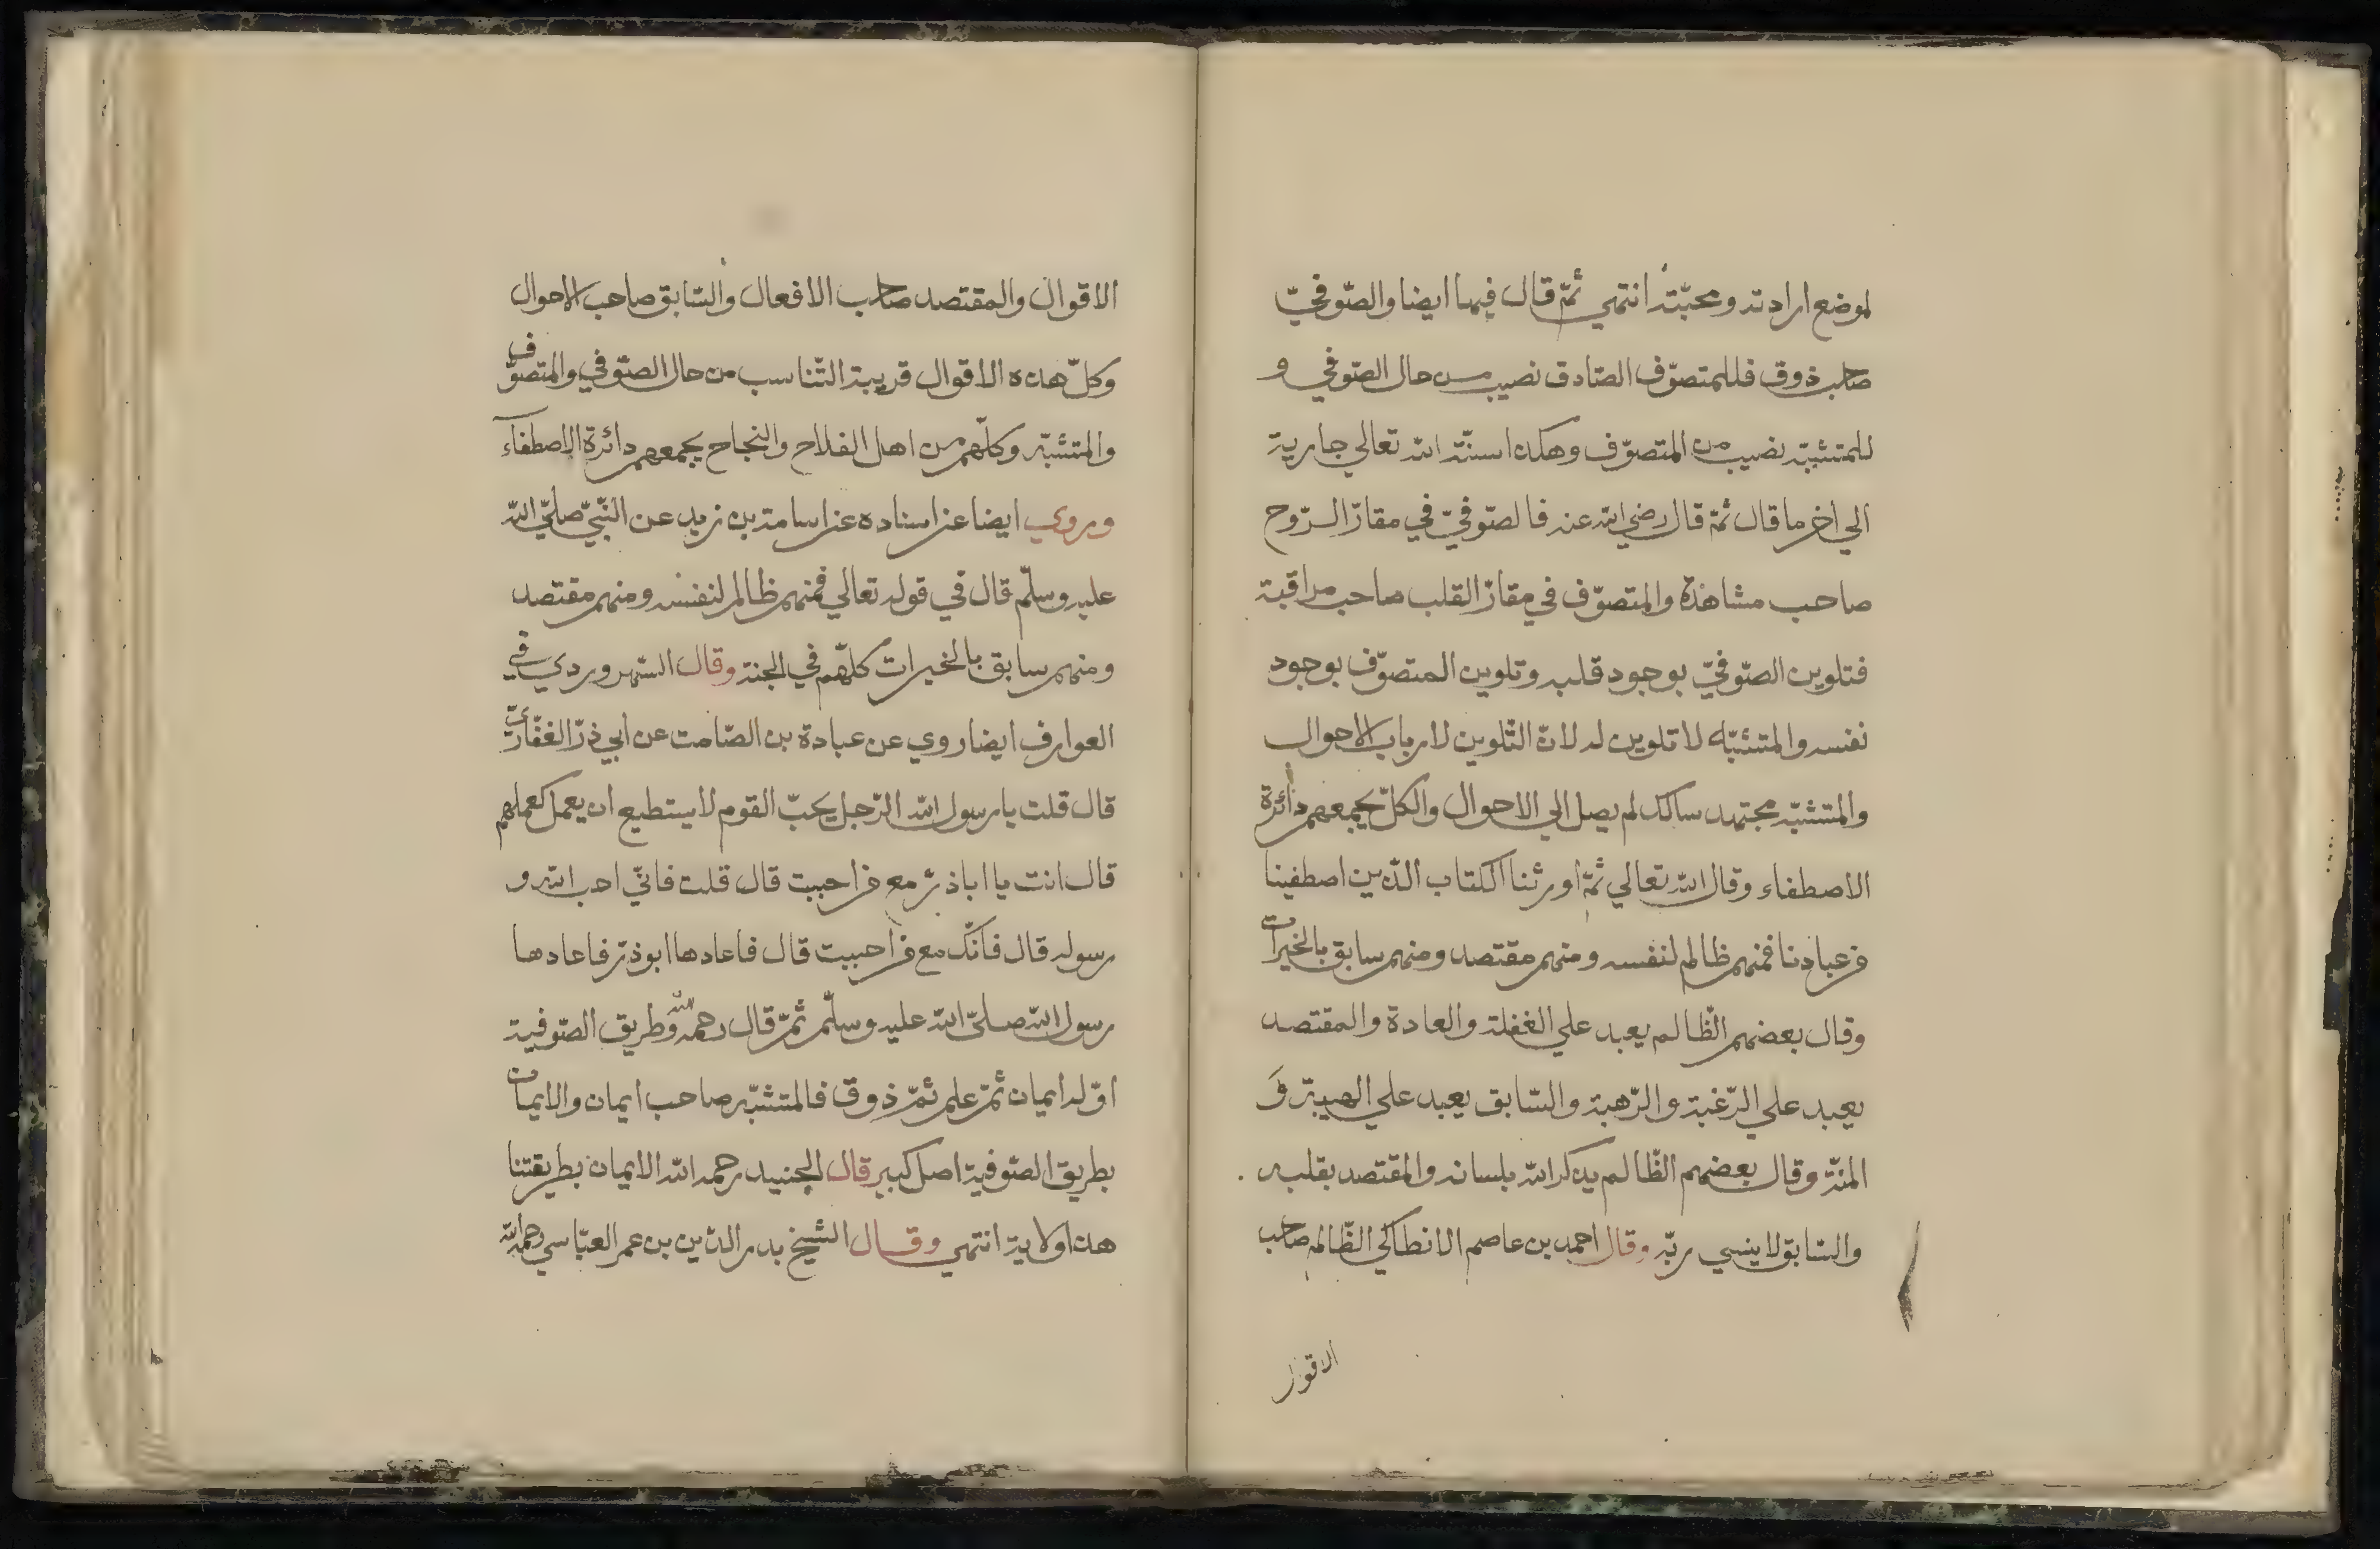 لموضع ارادته ومحبّته انتهي ثمّ قال فيها ايضا والصّوفيّ
صاحب ذوق فللمتصوّف الصّادق نصيب من حال الصّوفي و
للمتشبّه نصيب من المتصوّف وهكذا سنّة الله تعالي جارية
الي اخر ما قال ثمّ قال رضي الله عنه فالصّوفيّ في مقارّ الرّوح
صاحب مشاهدة والمتصوّف في مقارّ القلب صاحب مراقبة
فتلوين الصّوفيّ بوجود قلبه وتلوين المتصوّف بوجود
نفسه والمتشبّه لا تلوين له لانّ التّلوين لارباب الاحوال
والمتشبّه مجتهد سالك لم يصل الي الاحوال والكلّ يجمعهم دائرة
الاصطفاء وقال الله تعالي ثمّ اورثنا الكتاب الّذين اصطفينا
من عبادنا فمنهم ظالم لنفسه ومنهم مقتصد ومنهم سابق بالخيرات
وقال بعضهم الظّالم يعبد علي الغفلة والعادة والمقتصد
يعبد علي الرّغبة والرّهبة والسّابق يعبد علي الهيبة و
المنّة وقال بعضهم الظّالم يذكر الله بلسانه والمقتصد بقلبه
والسّابق لا ينسي ربّه وقال احمد بن عاصم الانطاكي الظّالم صاحب
الاقوال
الاقوال والمقتصد صاحب الافعال والسّابق صاحب الاحوال
وكلّ هذه الاقوال قريبة التّناسب من حال الصّوفي والمتصوّف
والمتشبّه وكلّهم من اهل الفلاح والنجاح يجمعهم دائرة الاصطفاء
وروي ايضا عن اسناده عن اسامة بن زيد عن النّبيّ صلّي الله
عليه وسلّم قال في قوله تعالي فمنهم ظالم لنفسه ومنهم مقتصد
ومنهم سابق بالخيرات كلّهم في الجنة وقال السّهروردي في
العوارف ايضا روي عن عبادة بن الصّامت عن ابي ذرّ الغفّاريّ
قال قلت يا رسول الله الرّجل يحبّ القوم لا يستطيع ان يعمل كعملهم
قال انت يا اباذرّ مع من احببت قال قلت فانّي احب الله و
رسوله قال فانّك مع من احببت قال فاعادها ابوذرّ فاعادها
رسول الله صلّي الله عليه وسلّم ثمّ قال رحمه الله وطريق الصّوفية
اوّله ايمان ثمّ علم ثمّ ذوق فالمتشبّه صاحب ايمان والايمان
بطريق الصّوفية اصل كبير قال الجنيد رحمه الله الايمان بطريقتنا
هذا ولاية انتهي وقال الشّيخ بدر الدّين بن عمر العبّاسي رحمه الله